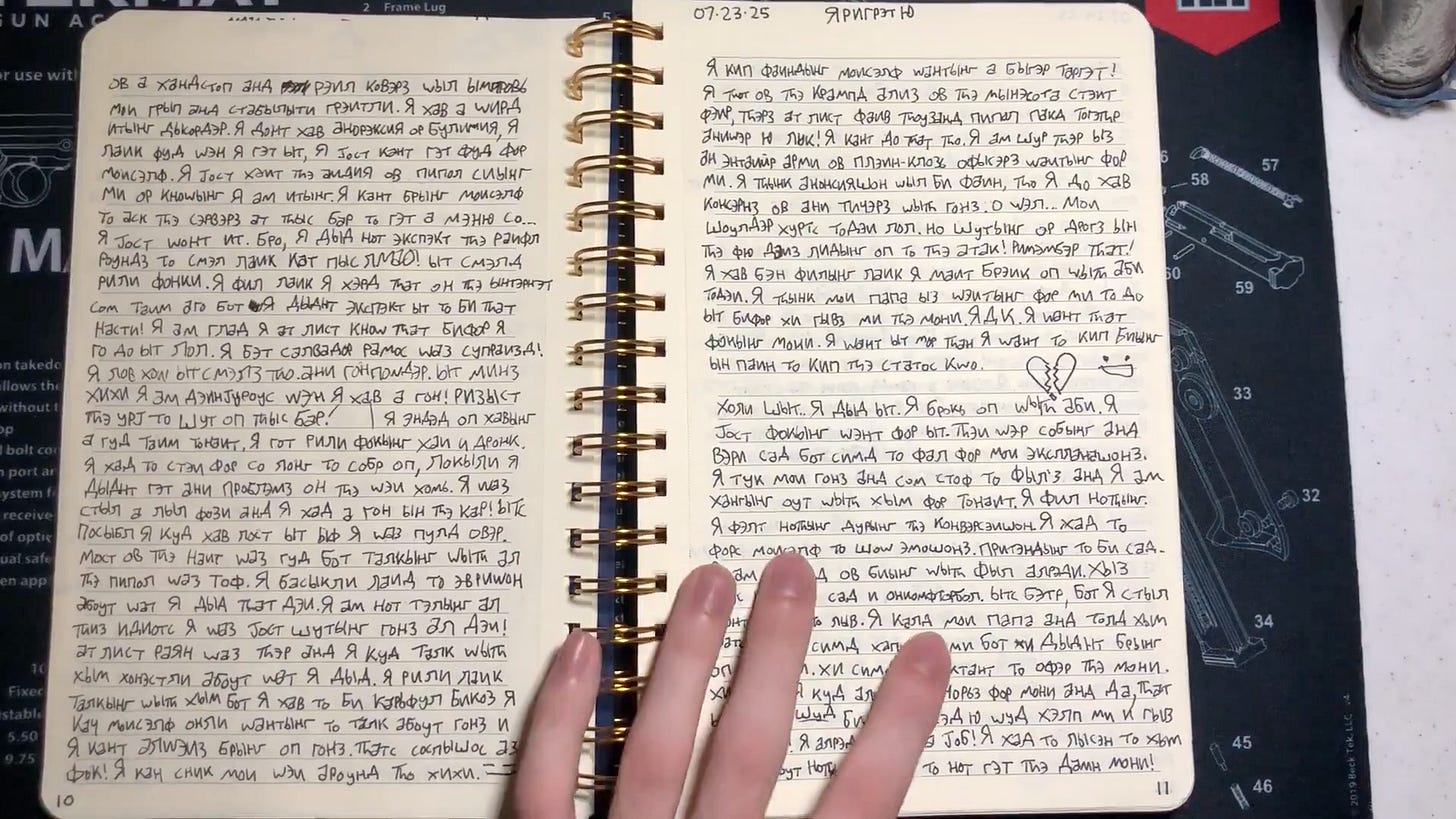 ов а хандстоп анд рэил ковэрз wыл ымпровь
мои грып анд стабылыти грэитли. Я хав а wирд
итынг дысордэр. Я донт хав анорэксия ор булимия, Я
лаик фуд wэн Я гэт ыт, Я jост кант гэт фуд фор
моисэлф. Я jост хэит тhэ аидия ов пипол сиынг
ми ор кноwынг Я ам итынг. Я кант брынг моисэлф
то аск тhэ сэрвэрз ат тhыс бар то гэт а мэню со...
Я jост wонт ит. Бро, Я дыд нот экспэкт тhэ раифл
роундз то смэл лаик кат пыс ЛМ́ЈО! ыт смэлд
рили фонки. Я фил лаик Я хэрд тhат он тhэ ынтэрнэт
сом таим аго бот Я дыднт экспэкт ыт то би тhат
насти! Я ам глад Я ат лист кноw тhат бифор Я
го до ыт лол. Я бэт салвадор рамос wаз супраизд!
Я лов хоw ыт смэлз тhо. ани гонпоwдэр. ыт минз
хихи Я ам дэинjуроус wэн Я хав а гон! ризыст
тhэ урj то шут оп тhыс бар! | Я эндэд оп хавынг
а гуд таим тонаит. Я гот рили фокынг хаи и дронк.
Я хад то стэи фор со лонг то собр оп, Локыли Я
дыднт гэт ани проблэмз он тhэ wэи хомь. Я wаз
стыл а лыл фози анд Я хад а гон ын тhэ кар! ытс
посыбл Я куд хав лост ыт ыф Я wаз пулд овэр.
мост ов тhэ наит wаз гуд бот талкынг wытh ал
тhэ пипол wаз тоф. Я басыкли лаид то эвриwон
абоут wат Я дыд тhат дэи. Я ам нот тэлынг ал
тhиз идиотс Я wаз jост шутынг гонз ал дэи!
ат лист раян wаз тhэр анд Я куд талк wытh
хым хонэстли абоут wат Я дыд. Я рили лаик
талкынг wытh хым бот Я хав то би карьфул бикоз Я
кэч моисэлф онли wантынг то талк абоут гонз и
Я кант алwэиз брынг оп гонз. тhатс соспышос аз
фок! Я кан сник мои wэи ароунд тhо хихи.
10
07.23.25 Я ригрэт ю
Я кип фаиндынг моисэлф wантынг а быгэр таргэт!
Я тhот ов тhэ крампд ализ ов тhэ мынэсота стэит
фэир, тhэрз ат лист фаив тhоузанд пипол пакд тогэтhр
аниwэр ю лук! Я кант до тhат тhо. Я ам шур тhэр ыз
ан энтаиир арми ов плэин-клоз офысэрз wаитынг фор
ми. Я тhынк анонсияшон wыл би фаин, тhо Я до хав
консэрнз ов ани тичэрз wытh гонз. О wэл... Мои
шоулдэр хуртс тодэи лол. но шутынг ор дрогз ын
тhэ фю дэиз лидынг оп то тhэ атак! римэмбэр тhат!
Я хав бэн филынг лаик Я маит брэик оп wытh аби
тодэи. Я тhынк мои папа ыз wэитынг фор ми то до
ыт бифор хи гывз ми тhэ мони. Я Д К. Я wант тhат
фокынг мони. Я wант ыт мор тhан Я wант то кип биынг
ын паин то кип тhэ статос кwо.
Холи шыт.. Я дыд ыт. Я брокь оп wытh аби. Я
jост фокынг wэнт фор ыт. Тhэи wэр собынг анд
вэри сад бот симд то фал фор мои экспланашонз.
Я тук мои гонз анд сом стоф то фыл'з анд Я ам
хангынг оут wытh хым фор тонаит. Я фил нотhынг.
Я фэлт нотhынг дурынг тhэ конвэрсэишон. Я хад то
форс моисэлф то шоw эмошонз. притэндынг то би сад.
ам ов биынг wытh фыл алрэди. хыз
сад и онкомфторбол. ытс бэтр, бот Я стыл
лыв. Я калд мои папа анд толд хым
симд ми бот хи дыднт брынг
хи то офэр тhэ мони.
куд фор мони анд да, тhат
шуд би ю шуд хэлп ми и гыв
! Я алрэд jоб! Я хад то лысэн то хым
то нот гэт тhэ дамн мони!
11
2 Frame Lug
57
58
59
60
33
32
34
45
46
© 2019 Beck Tek, LLC v4